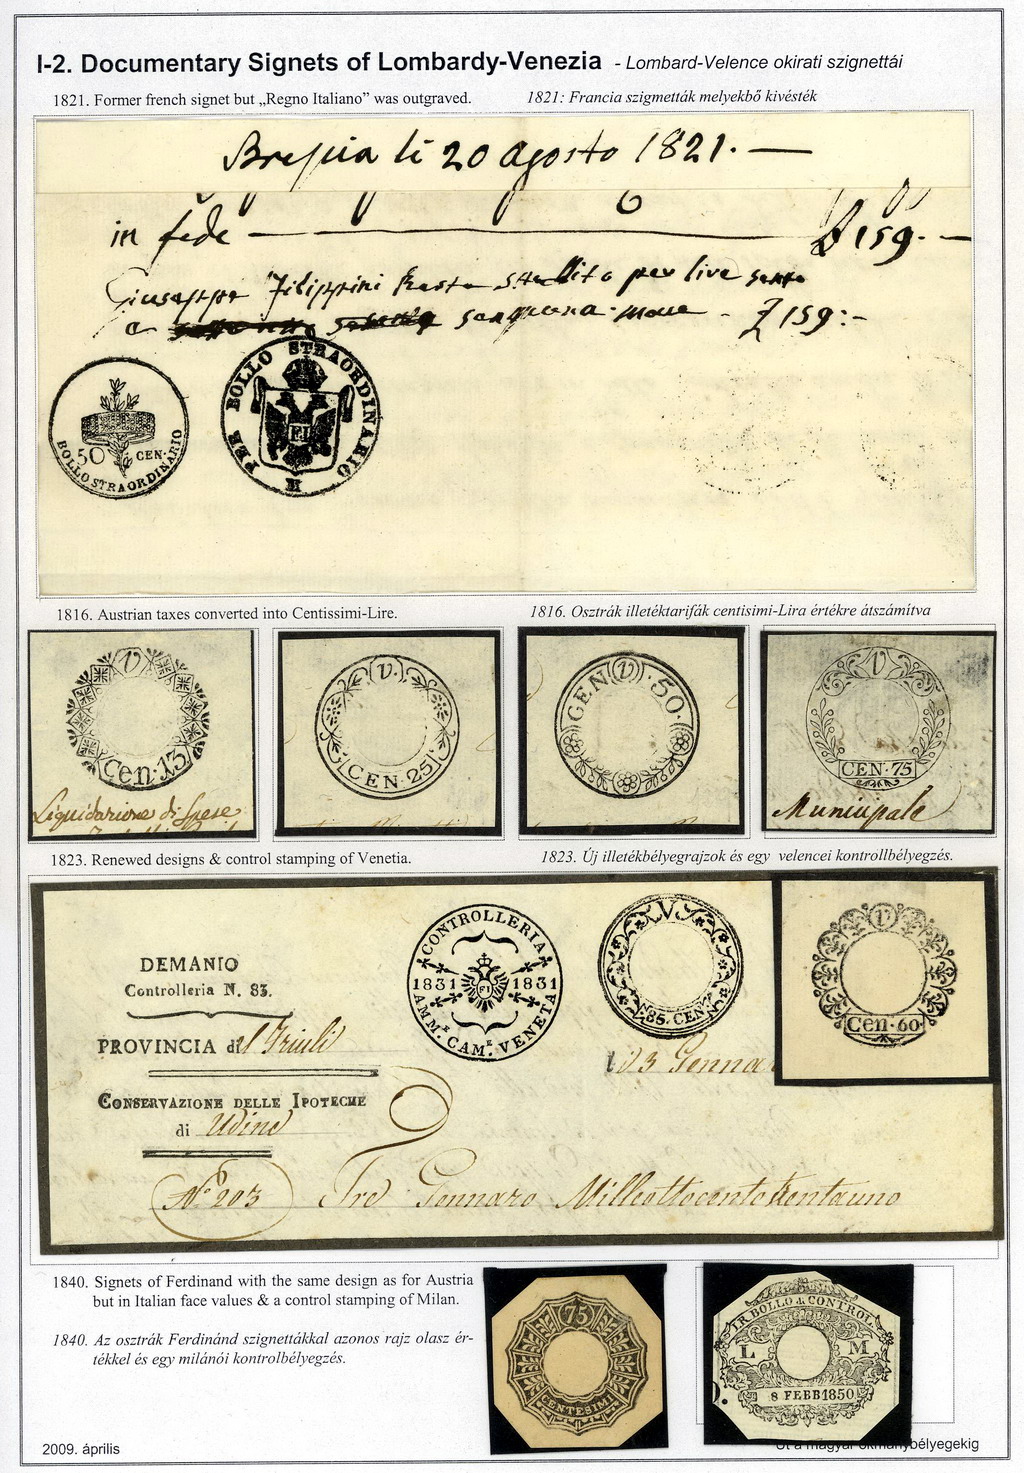 I-2. Documentary Signets of Lombardy-Venezia - Lombard-Velence okirati szignettái
1821. Former french signet but „Regno Italiano” was outgraved. 1821: Francia szigmetták melyekbő kivésték
Brescia li 20 Agosto 1821.
in fede £ 159.
Giuseppe Filippini per lire
£ 159:-
50 CEN.
BOLLO STRAORDINARIO
PER BOLLO STRAORDINARIO
FI
M
1816. Austrian taxes converted into Centissimi-Lire. 1816. Osztrák illetéktarifák centisimi-Lira értékre átszámítva
V
Cen. 13
Liquidazione di Spese
V.
CEN. 25
CEN V 50.
V
CEN. 75
Municipale
1823. Renewed designs & control stamping of Venetia. 1823. Új illetékbélyegrajzok és egy velencei kontrollbélyegzés.
DEMANIO
Controlleria N. 83.
PROVINCIA del Friuli
CONSERVAZIONE DELLE IPOTECHE
di Udine
CONTROLLERIA
1831 FI 1831
AMM.E CAM.E VENETA
V
85. CEN.
V
Cen. 60
3 Gennar
No 203 Tre Gennaro Milleottocentotrentauno
1840. Signets of Ferdinand with the same design as for Austria
but in Italian face values & a control stamping of Milan.
1840. Az osztrák Ferdinánd szignettákkal azonos rajz olasz ér-
tékkel és egy milánói kontrolbélyegzés.
75
CENTESIMI
I.R BOLLO & CONTROL
L M
8 FEBB 1850
2009. április
Út a magyar okmánybélyegekig